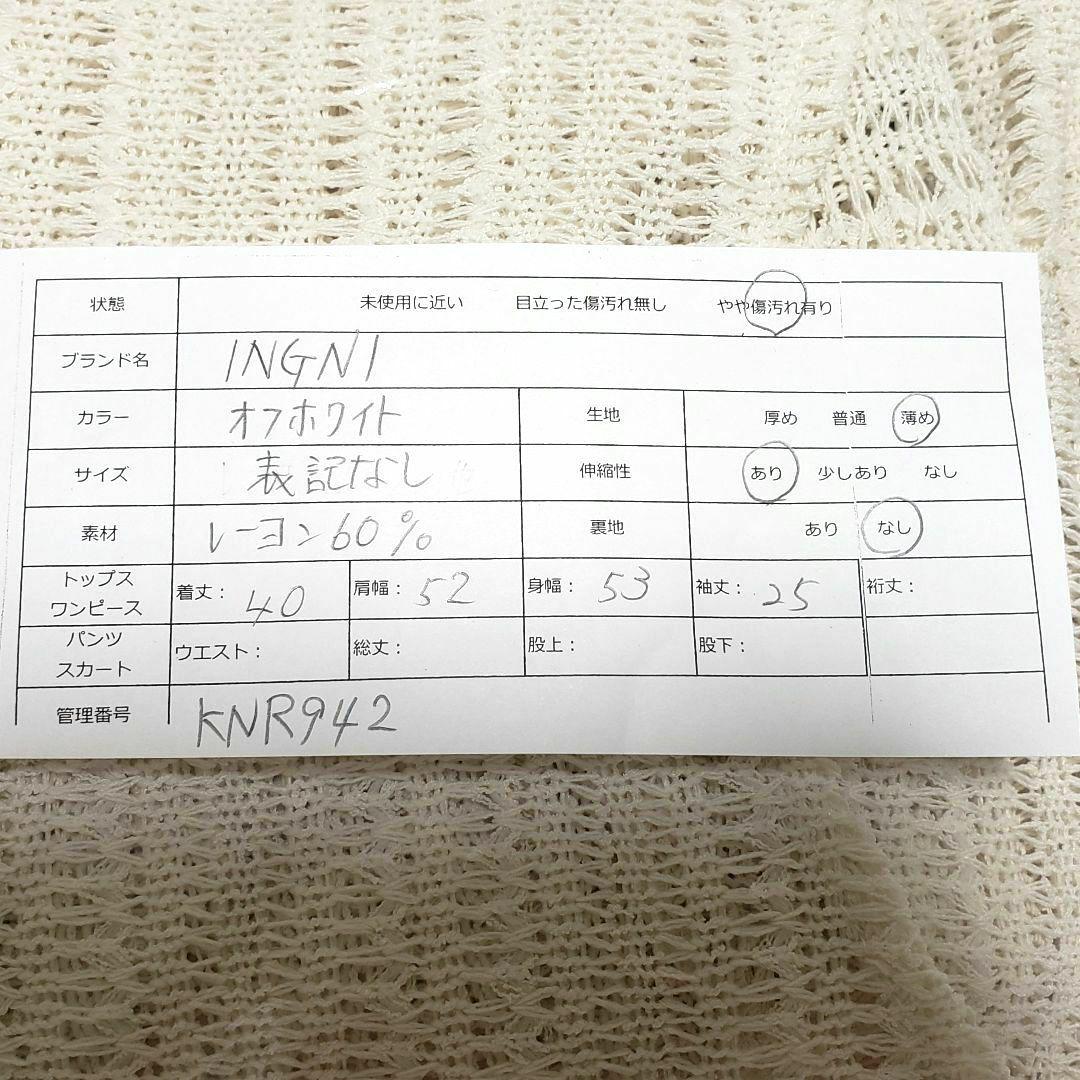 状態 未使用に近い 目立った傷汚れ無し やや傷汚れ有り
ブランド名 INGNI
カラー オフホワイト 生地 厚め 普通 薄め
サイズ 表記なし 伸縮性 あり 少しあり なし
素材 レーヨン60% 裏地 あり なし
トップス
ワンピース 着丈： 40 肩幅： 52 身幅： 53 袖丈： 25 裄丈：
パンツ
スカート ウエスト： 総丈： 股上： 股下：
管理番号 KNR942